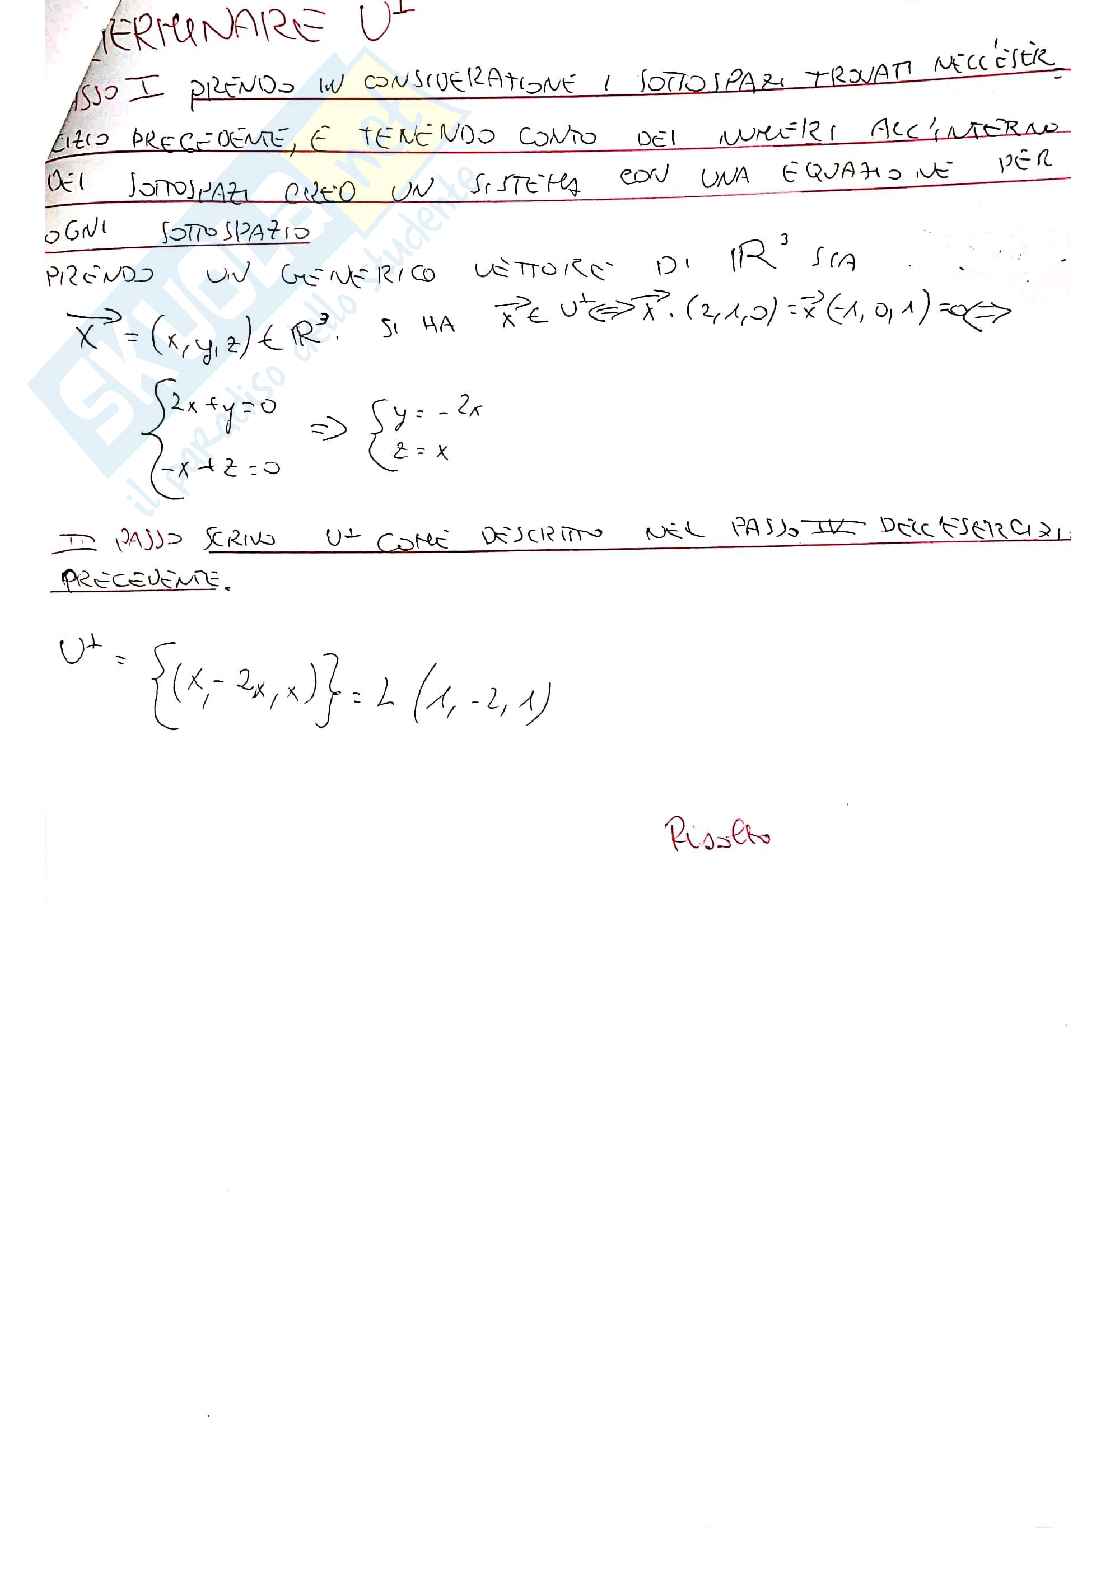 TERMINARE U⊥
ASSO I PRENDO IN CONSIDERAZIONE I SOTTOSPAZI TROVATI NELL'ESER
CIZIO PRECEDENTE, E TENENDO CONTO DEI NUMERI ALL'INTERNO
DEI SOTTOSPAZI CREO UN SISTEMA CON UNA EQUAZIONE PER
OGNI SOTTOSPAZIO
PRENDO UN GENERICO VETTORE DI ℝ³ SIA
x⃗ = (x, y, z) ∈ ℝ³. SI HA x⃗ ∈ U⊥ ⇔ x⃗ · (2, 1, 0) = x⃗ (-1, 0, 1) = 0 ⇔
{2x + y = 0 ⇒ {y = -2x
{-x + z = 0 {z = x
II PASSO SCRIVO U⊥ COME DESCRITTO NEL PASSO IV DELL'ESERCIZI
PRECEDENTE.
U⊥ = {(x, -2x, x)} = L (1, -2, 1)
Risolto
SKUOLA.net
il paradiso dello studente